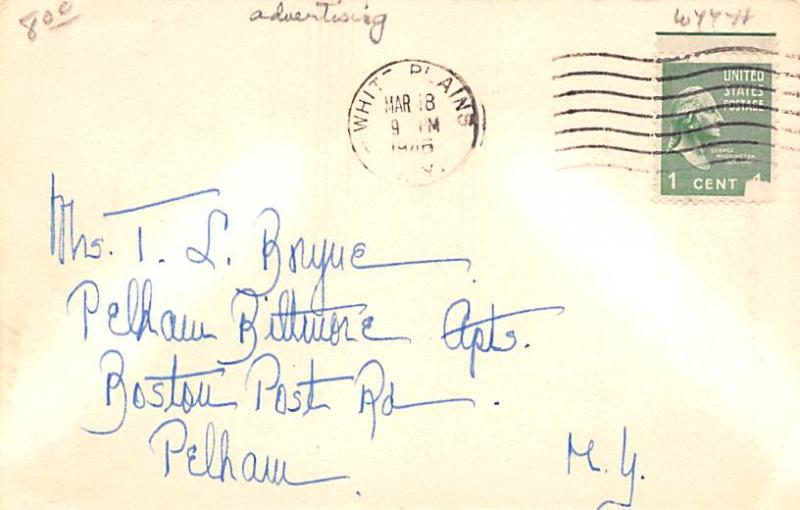 800
advertising
WHITE PLAINS
MAR 18
9 PM
N.Y.
UNITED
STATES
POSTAGE
GEORGE
WASHINGTON
1 CENT
Mrs. T. L. Boryue
Pelham Biltmore Apts.
Boston Post Rd.
Pelham, N.Y.